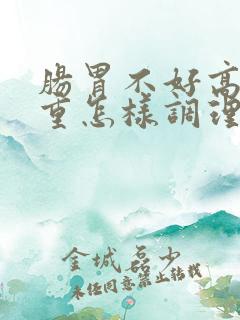 腸胃不好高
重怎樣調理
金城磊少
未任同意禁止转载